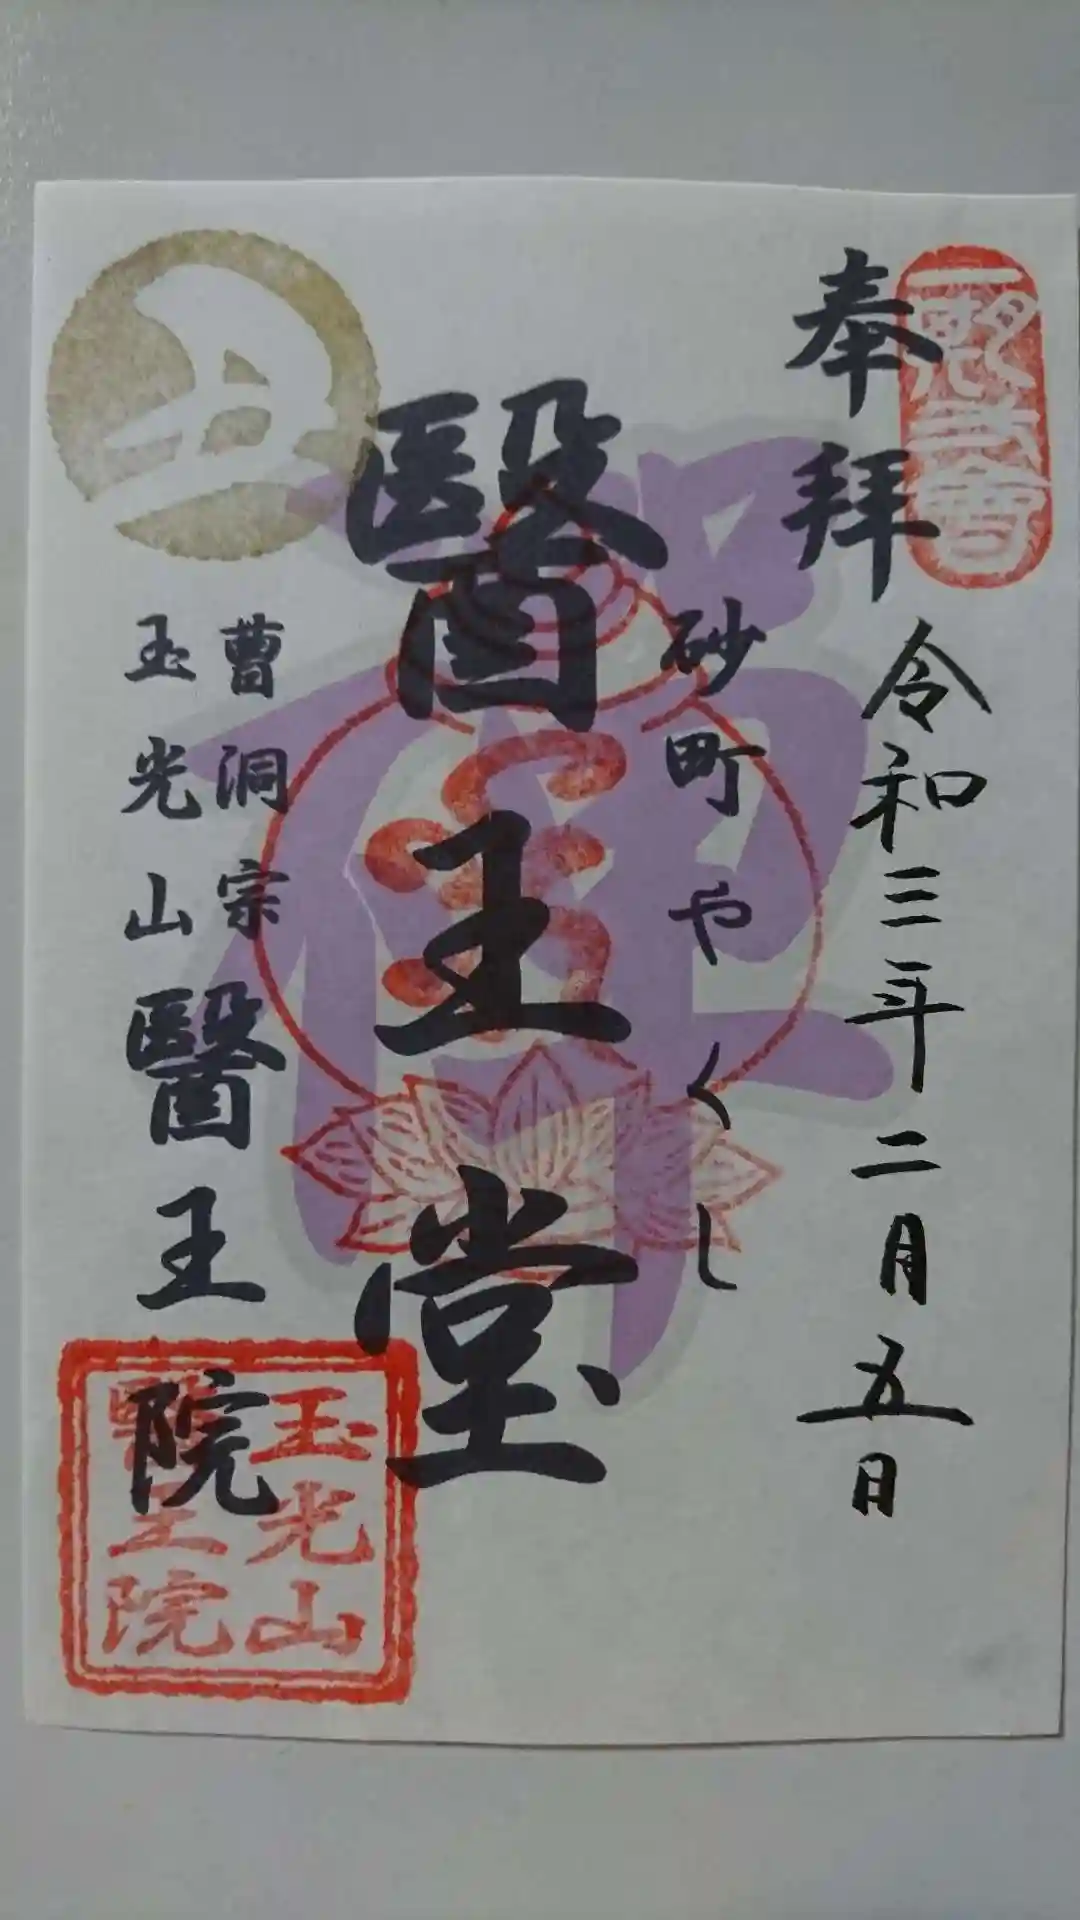 奉拝
令和三年二月五日
砂町やくし
醫王堂
禅
丑
曹洞宗
玉光山醫王院
玉光山
醫王院